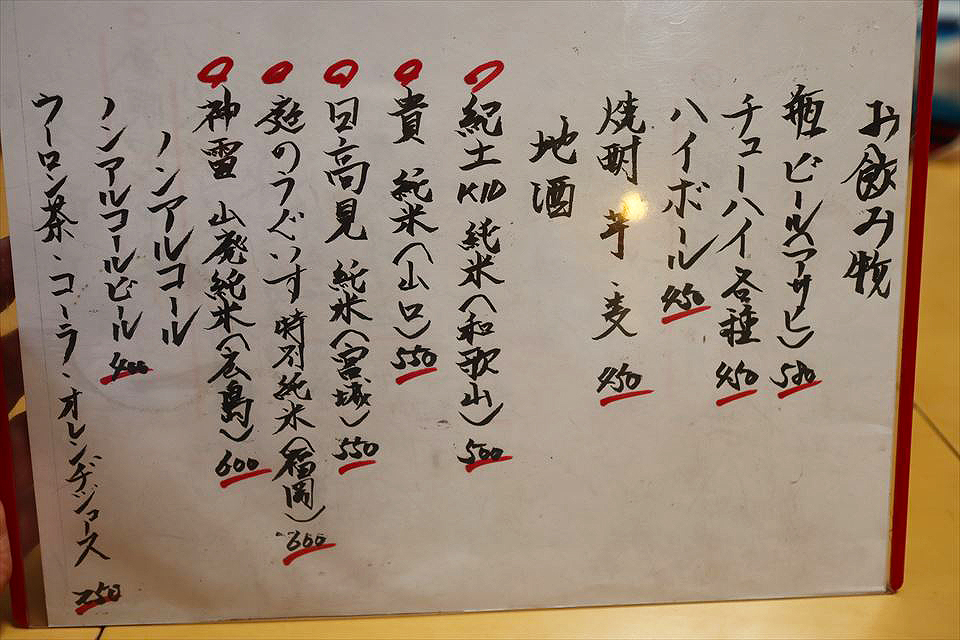 お飲み物
瓶ビール(アサヒ) 580
チューハイ各種 450
ハイボール 450
焼酎 芋、麦 450
地酒
紀土KID 純米(和歌山) 500
貴 純米(山口) 550
日高見 純米(宮城) 550
庭のうぐいす 特別純米(福岡) 600
神雪 山廃純米(広島) 600
ノンアルコール
ノンアルコールビール 400
ウーロン茶、コーラ、オレンヂジュース 250